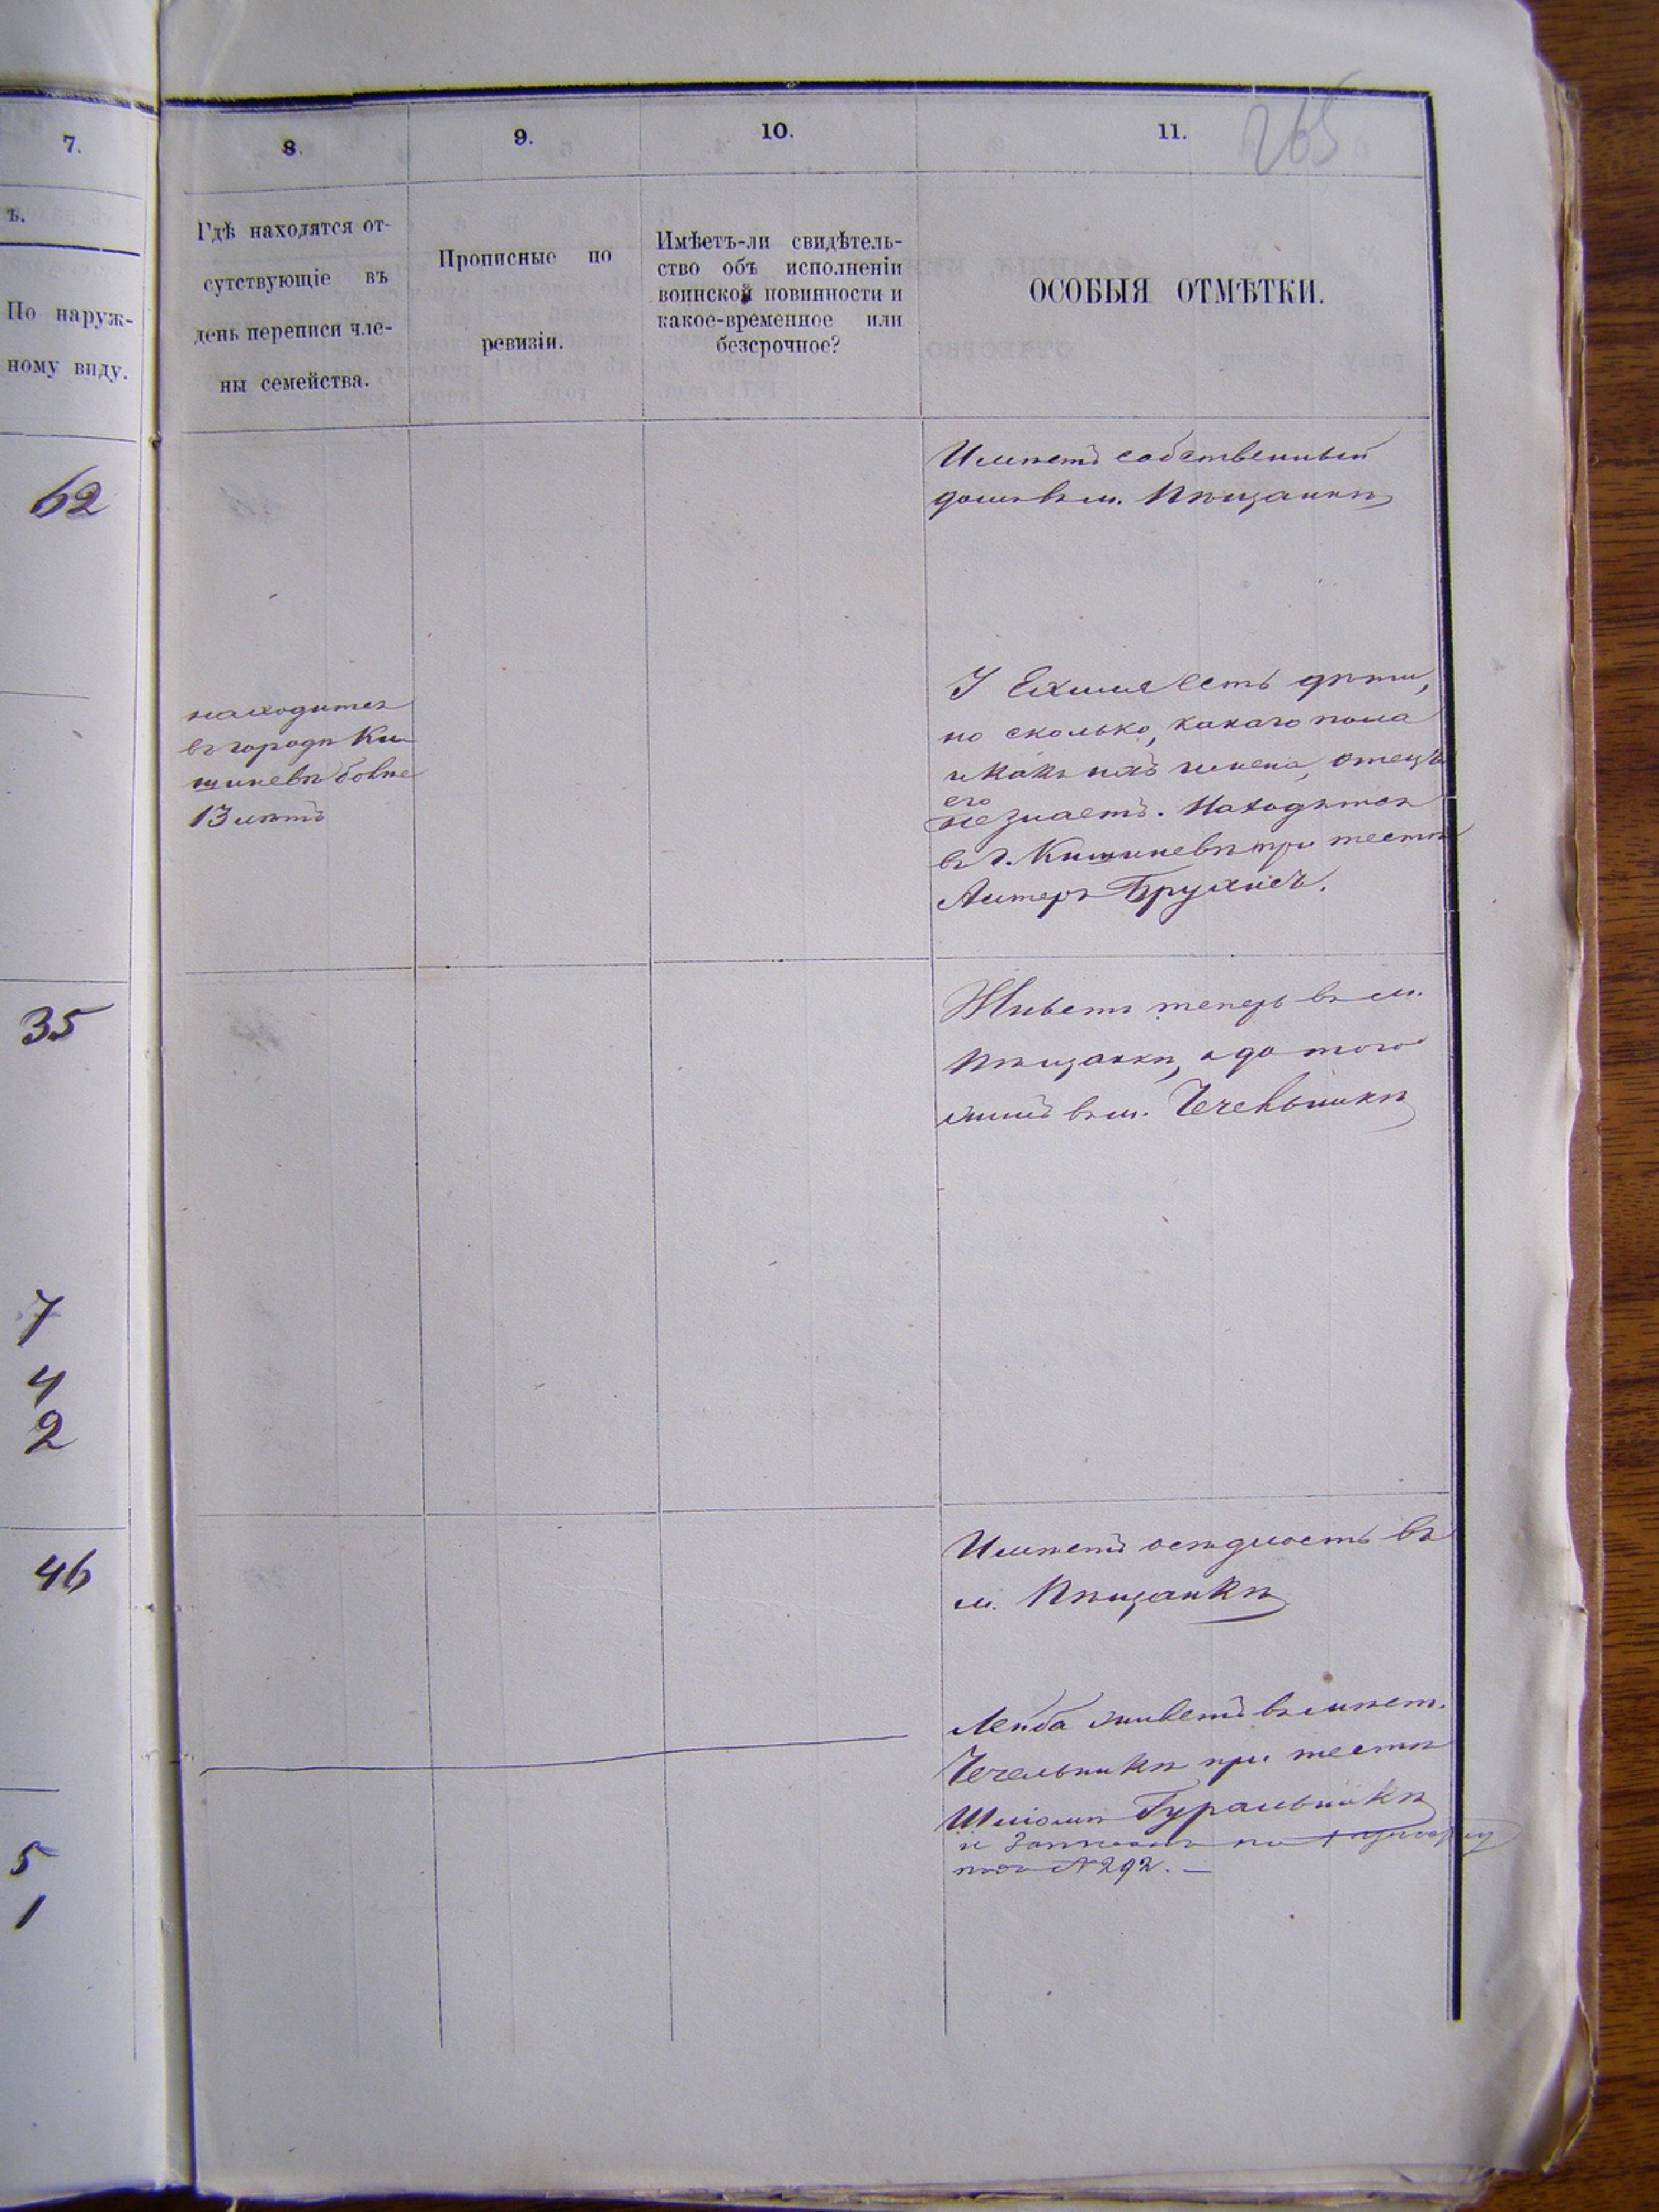 265
7.
8.
9.
10.
11.
ъ.
По наруж-
ному виду.
Гдѣ находятся от-
сутствующіе въ
день переписи чле-
ны семейства.
Прописные по
ревизіи.
Имѣетъ-ли свидѣтель-
ство объ исполненіи
воинской повинности и
какое-временное или
безсрочное?
ОСОБЫЯ ОТМѢТКИ.
62
Имѣетъ собственный
домъ въ м. Пѣщанкѣ
находится
въ городѣ Ки-
шиневѣ болѣе
13 лѣтъ
У Ехиля есть дѣти,
но сколько, какаго пола
и какъ ихъ имена, отецъ
его
не знаетъ. Находится
въ г. Кишиневѣ при тестѣ
Алтеръ Брухисъ.
35
Живетъ теперь въ м.
Пѣщанкѣ, а до того
жилъ въ м. Чечельникѣ
7
4
2
46
Имѣетъ осѣдлость въ
м. Пѣщанкѣ
Лейба живетъ въ мѣст.
Чечельникѣ при тестѣ
Шліомѣ Гуральникѣ
и записанъ по
подъ № 292. —
5
1